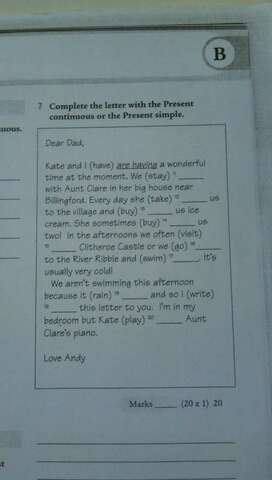 B
7 Complete the letter with the Present
continuous or the Present simple.
uous.
Dear Dad,
Kate and I (have) are having a wonderful
time at the moment. We (stay) ______
with Aunt Clare in her big house near
Billingford. Every day she (take) ______ us
to the village and (buy) ______ us ice
cream. She sometimes (buy) ______ us
two! in the afternoons we often (visit)
______ Clitheroe Castle or we (go) ______
to the River Ribble and (swim) ______. It's
usually very cold!
We aren't swimming this afternoon
because it (rain) ______ and so I (write)
______ this letter to you. I'm in my
bedroom but Kate (play) ______ Aunt
Clare's piano.
Love Andy
Marks ______ (20 x 1) 20